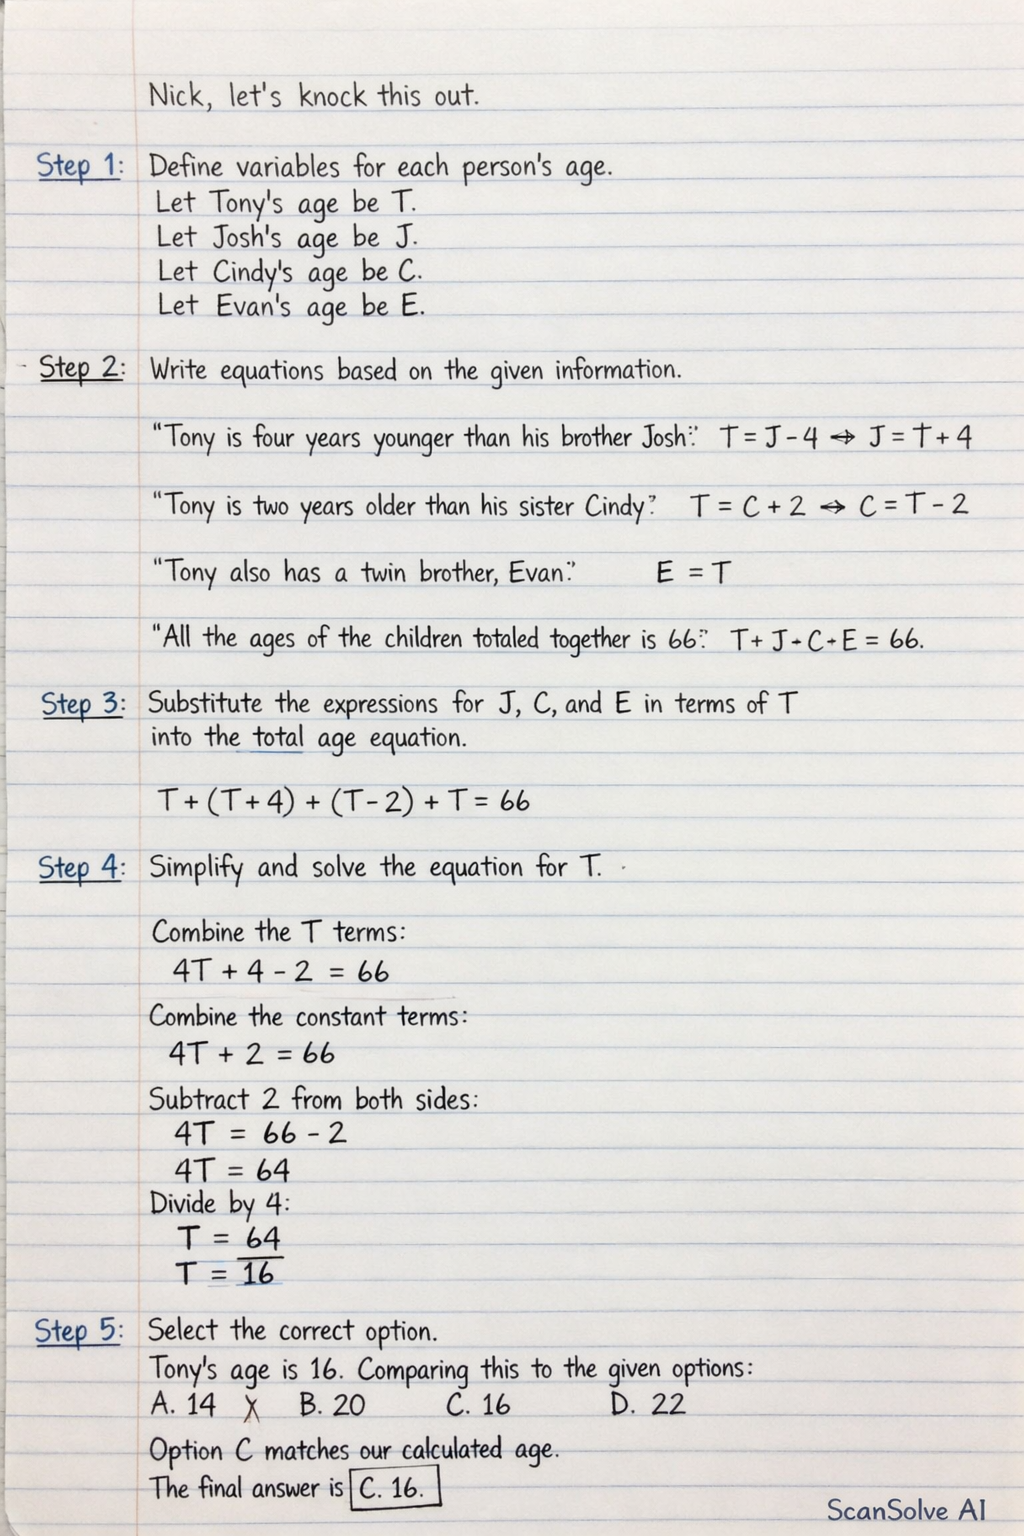 Nick, let's knock this out.
Step 1: Define variables for each person's age.
Let Tony's age be T.
Let Josh's age be J.
Let Cindy's age be C.
Let Evan's age be E.
Step 2: Write equations based on the given information.
"Tony is four years younger than his brother Josh." T = J - 4 ⇔ J = T + 4
"Tony is two years older than his sister Cindy." T = C + 2 → C = T - 2
"Tony also has a twin brother, Evan." E = T
"All the ages of the children totaled together is 66." T + J + C + E = 66.
Step 3: Substitute the expressions for J, C, and E in terms of T
into the total age equation.
T + (T + 4) + (T - 2) + T = 66
Step 4: Simplify and solve the equation for T.
Combine the T terms:
4T + 4 - 2 = 66
Combine the constant terms:
4T + 2 = 66
Subtract 2 from both sides:
4T = 66 - 2
4T = 64
Divide by 4:
T = 64
T = 16
Step 5: Select the correct option.
Tony's age is 16. Comparing this to the given options:
A. 14 X B. 20 C. 16 D. 22
Option C matches our calculated age.
The final answer is C. 16.
ScanSolve AI